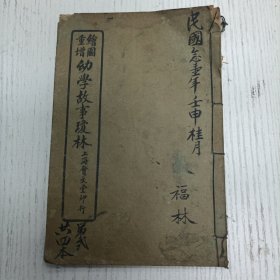 民國念壹年壬申桂月
福林
繪圖
重增
幼學故事瓊林
上海會文堂印行
第貳
共四本